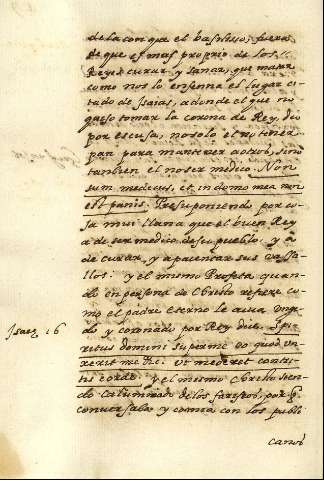 de la con que el basilisco; fuera
de que es mas proprio de los
Reyes curar y sanar, que matar
como nos lo enseña el lugar ci
tado de Isaias, adonde el que no
quiso tomar la corona de Rey, dio
por escusa, no solo el no tener
pan para mantener a otros, sino
tambien el no ser medico. Non
sum medicus, et in domo mea non
est panis. Presuponiendo por co
sa mui llana que el buen Rey
a de ser medico de su pueblo, y a
de curar, y apacentar sus vasa
llos. y el mismo Profeta quan
do en persona de Christo refiere co
mo el padre eterno le avia ungi
Isaiæ 16
do y coronado por Rey dice. Spi
ritus domini super me eo quod un
xerit me &c. ut mederer contri
tis corde. y el mismo Christo sien
do calumniado de los fariseos, por q
conversaba y comia con los publi
canos